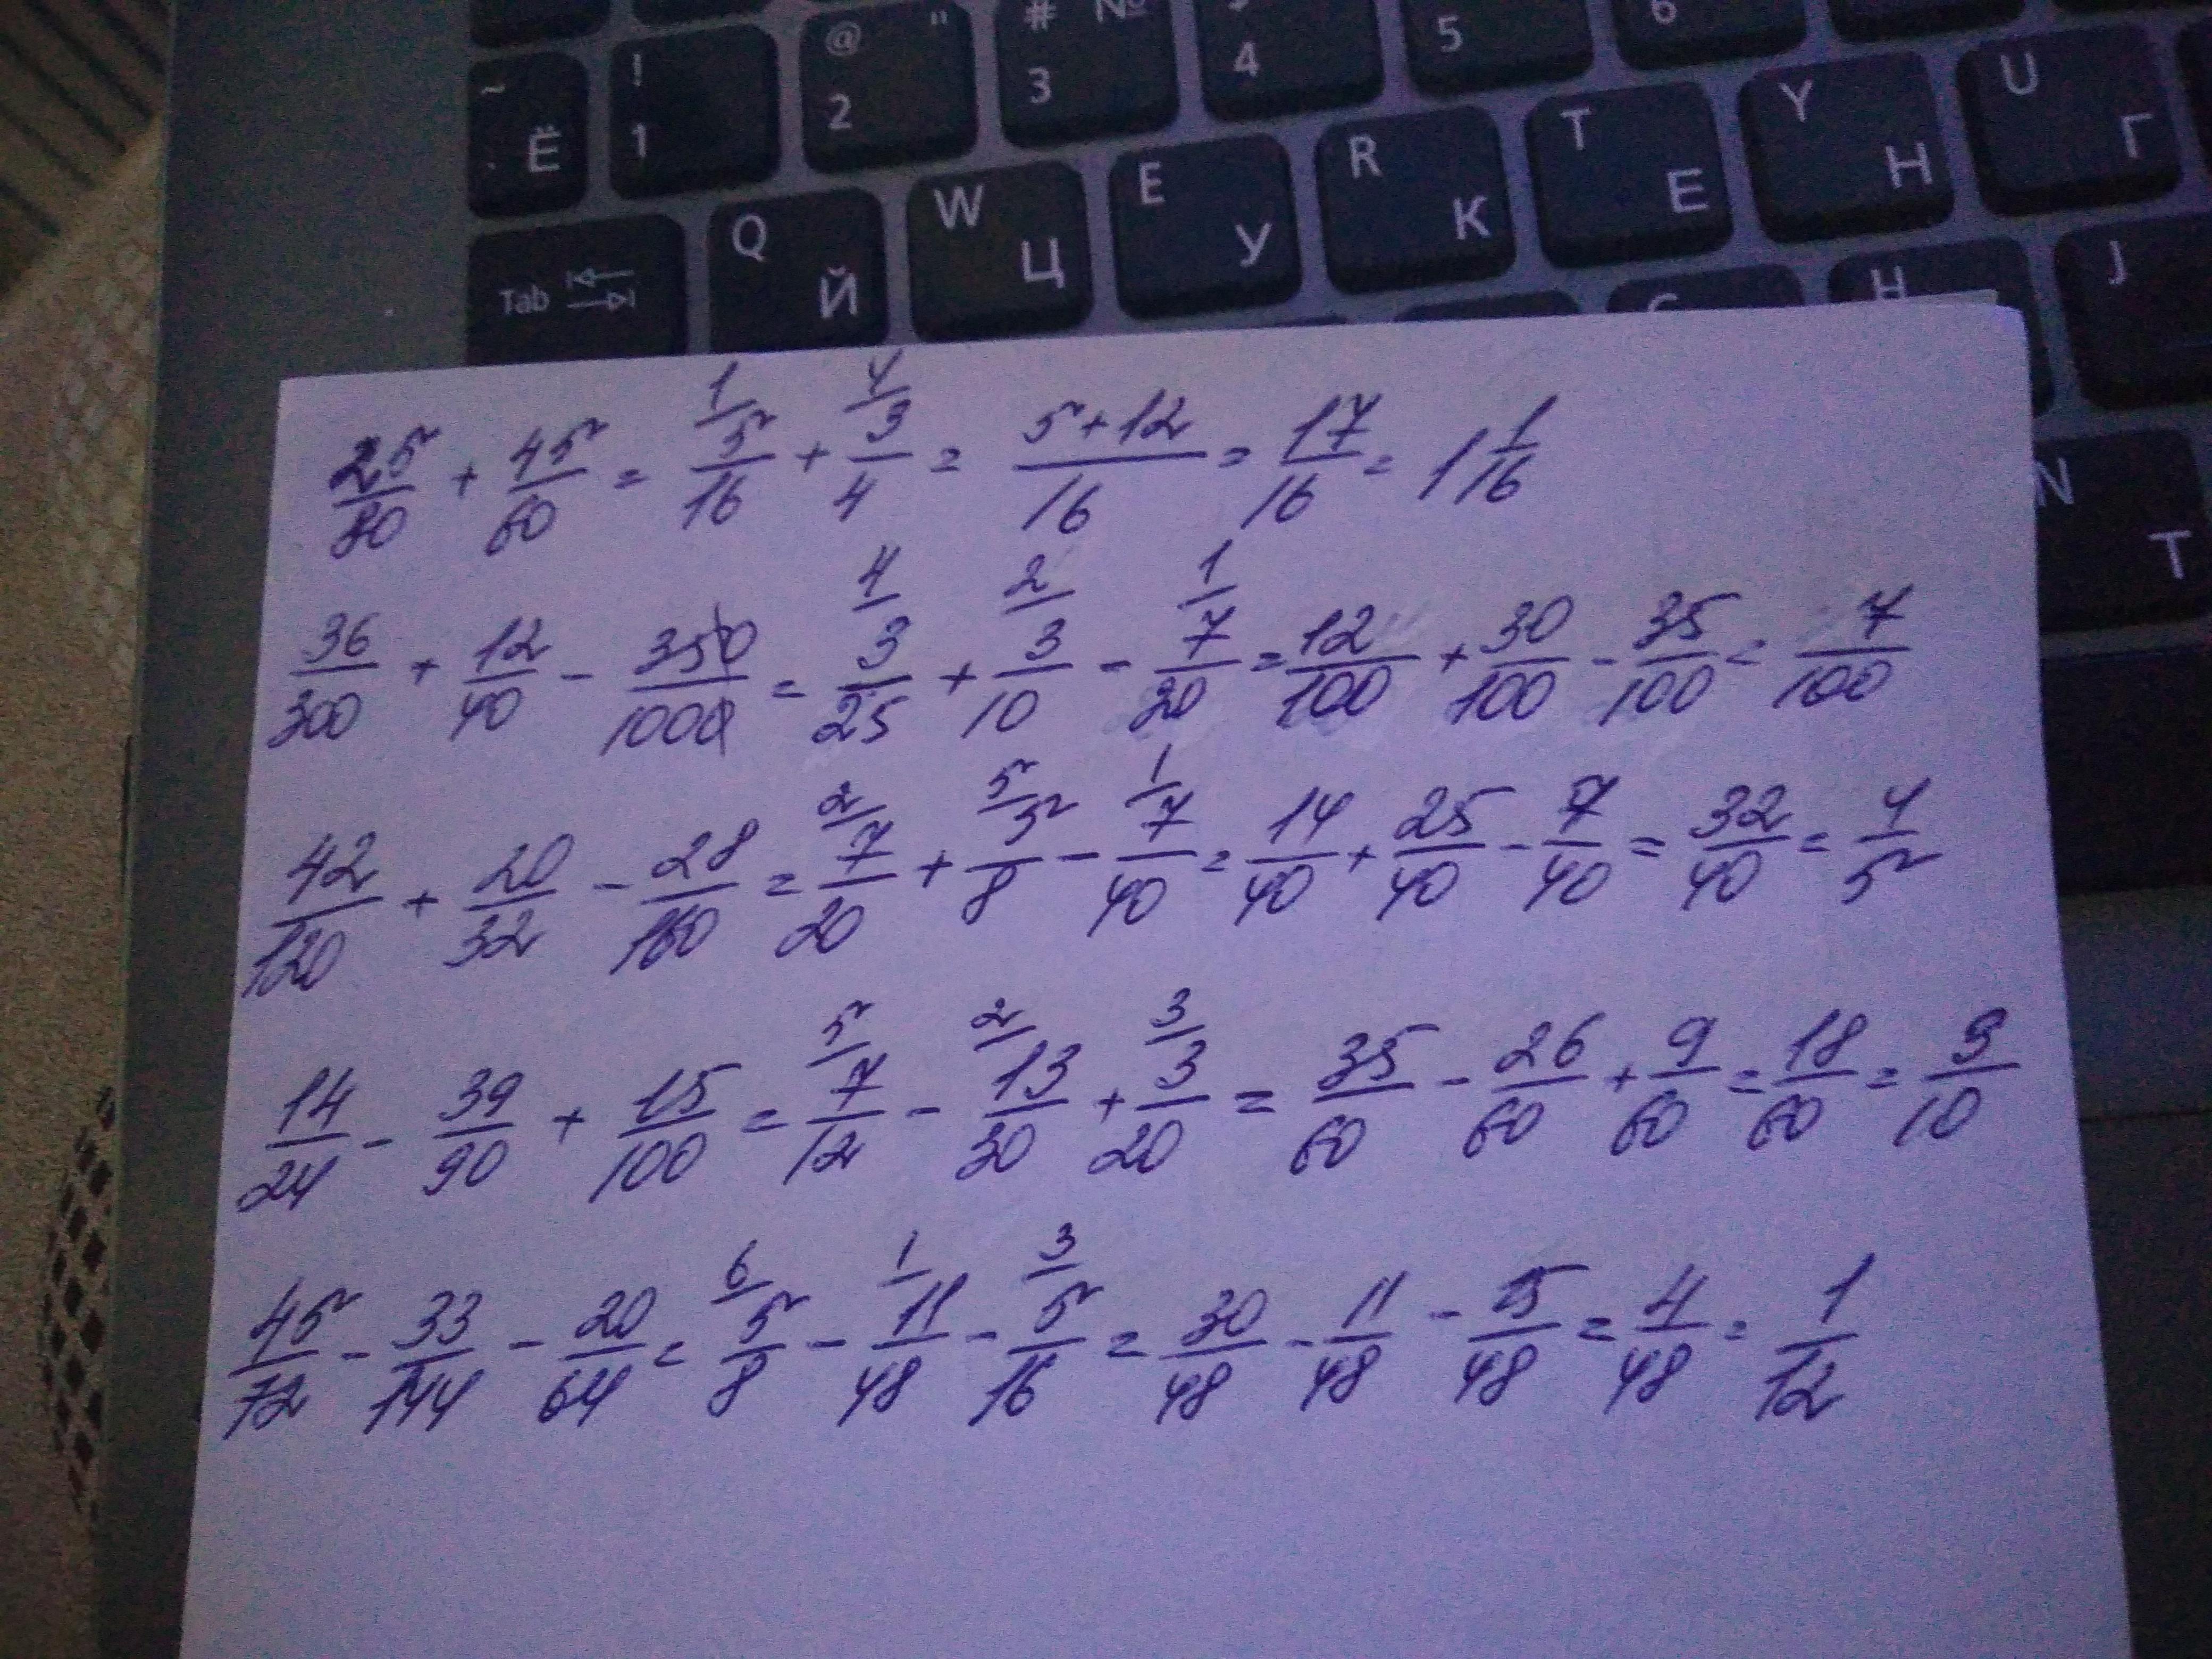 @ " # № 5 6
~ Ё ! 1 2 3 4
Tab Q Й W Ц E У R К T Е Y Н U Г
H J
N Т
25/80 + 45/60 = 1/ 5/16 + 4/ 3/4 = (5+12)/16 = 17/16 = 1 1/16
36/300 + 12/40 - 350/1000 = 4/ 3/25 + 2/ 3/10 - 1/ 7/20 = 12/100 + 30/100 - 35/100 = 7/100
42/120 + 20/32 - 28/160 = 2/ 7/20 + 5/ 5/8 - 1/ 7/40 = 14/40 + 25/40 - 7/40 = 32/40 = 4/5
14/24 - 39/90 + 15/100 = 5/ 7/12 - 2/ 13/30 + 3/ 3/20 = 35/60 - 26/60 + 9/60 = 18/60 = 3/10
45/72 - 33/144 - 20/64 = 6/ 5/8 - 1/ 11/48 - 3/ 5/16 = 30/48 - 11/48 - 15/48 = 4/48 = 1/12